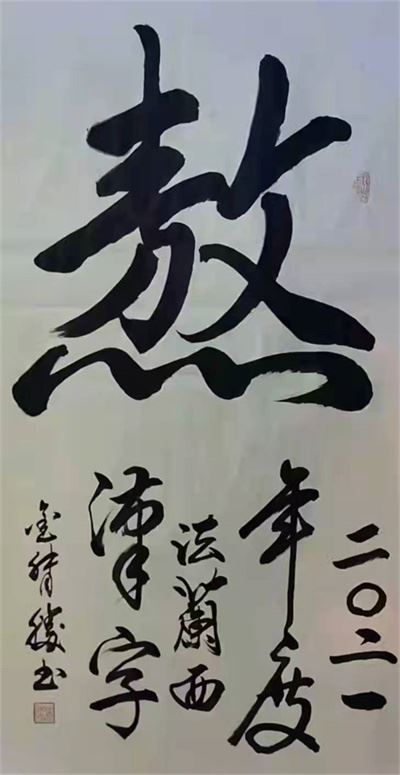 熬
二〇二一
年度
法蘭西
漢字
金情勝书